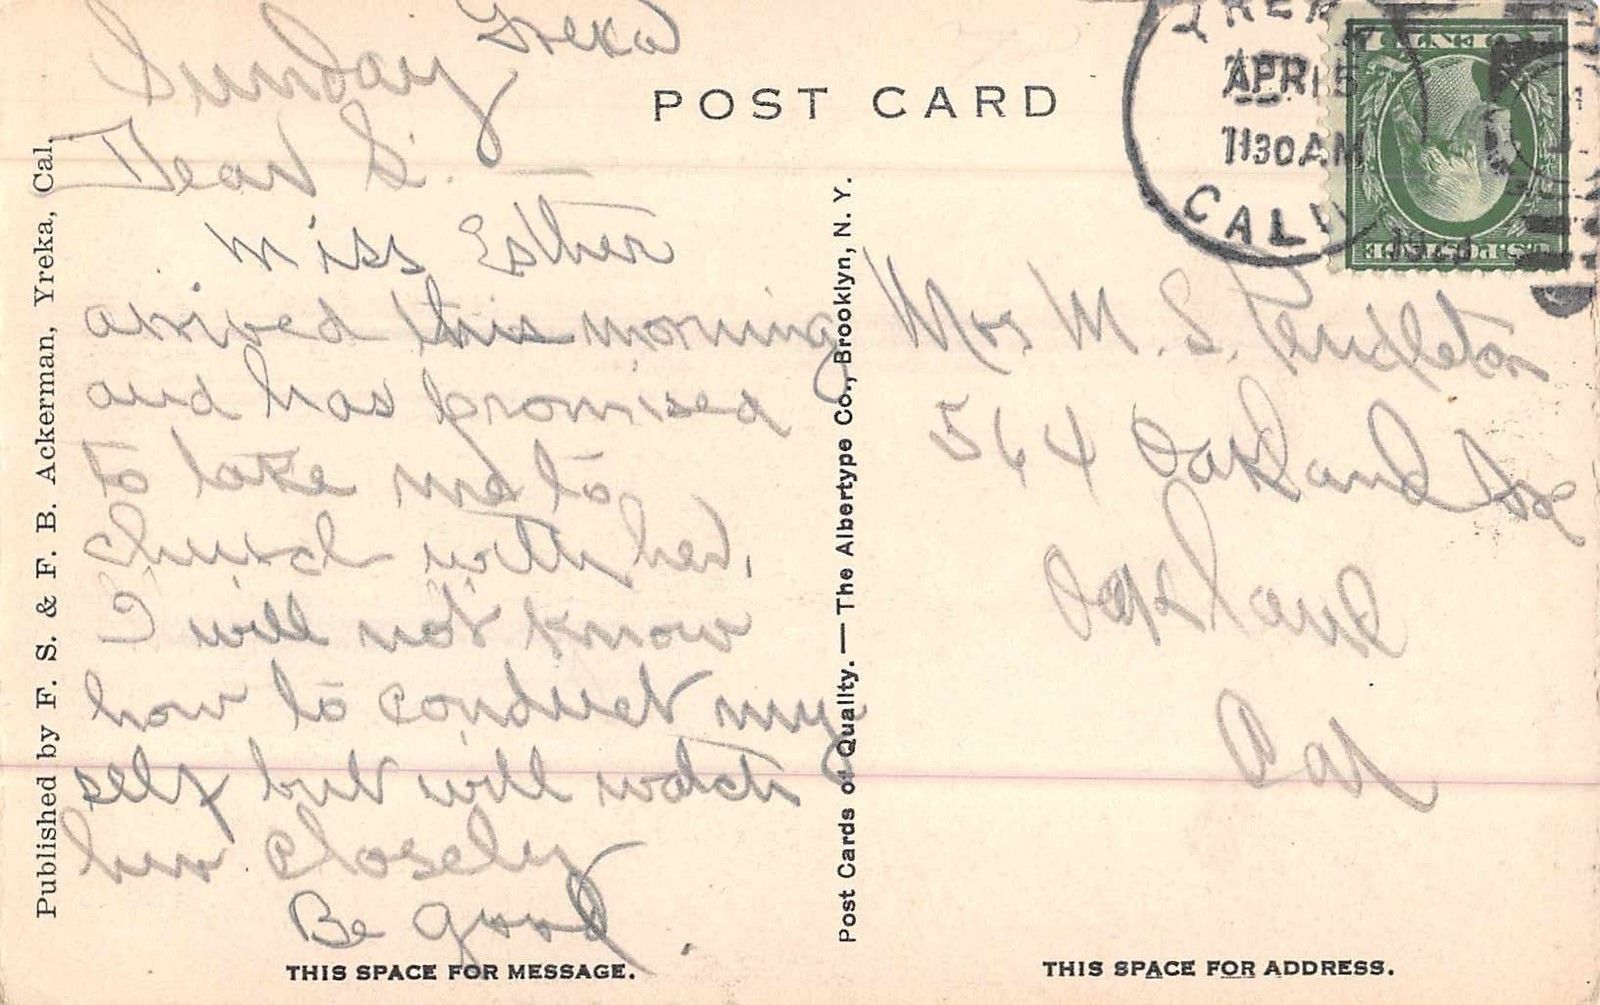 Sunday Yreka
Dear S.
Miss Esther
arrived this morning
and has promised
to take me to
church with her.
I will not know
how to conduct my
self but will watch
her closely
Be good.
THIS SPACE FOR MESSAGE.
Published by F. S. & F. B. Ackerman, Yreka, Cal.
POST CARD
Post Cards of Quality. — The Albertype Co., Brooklyn, N. Y.
YREKA
APR 15
1130 AM
CALIF
U.S. POSTAGE
Mrs M. S. Pendleton
564 Oakland Ave
Oakland
Cal
THIS SPACE FOR ADDRESS.